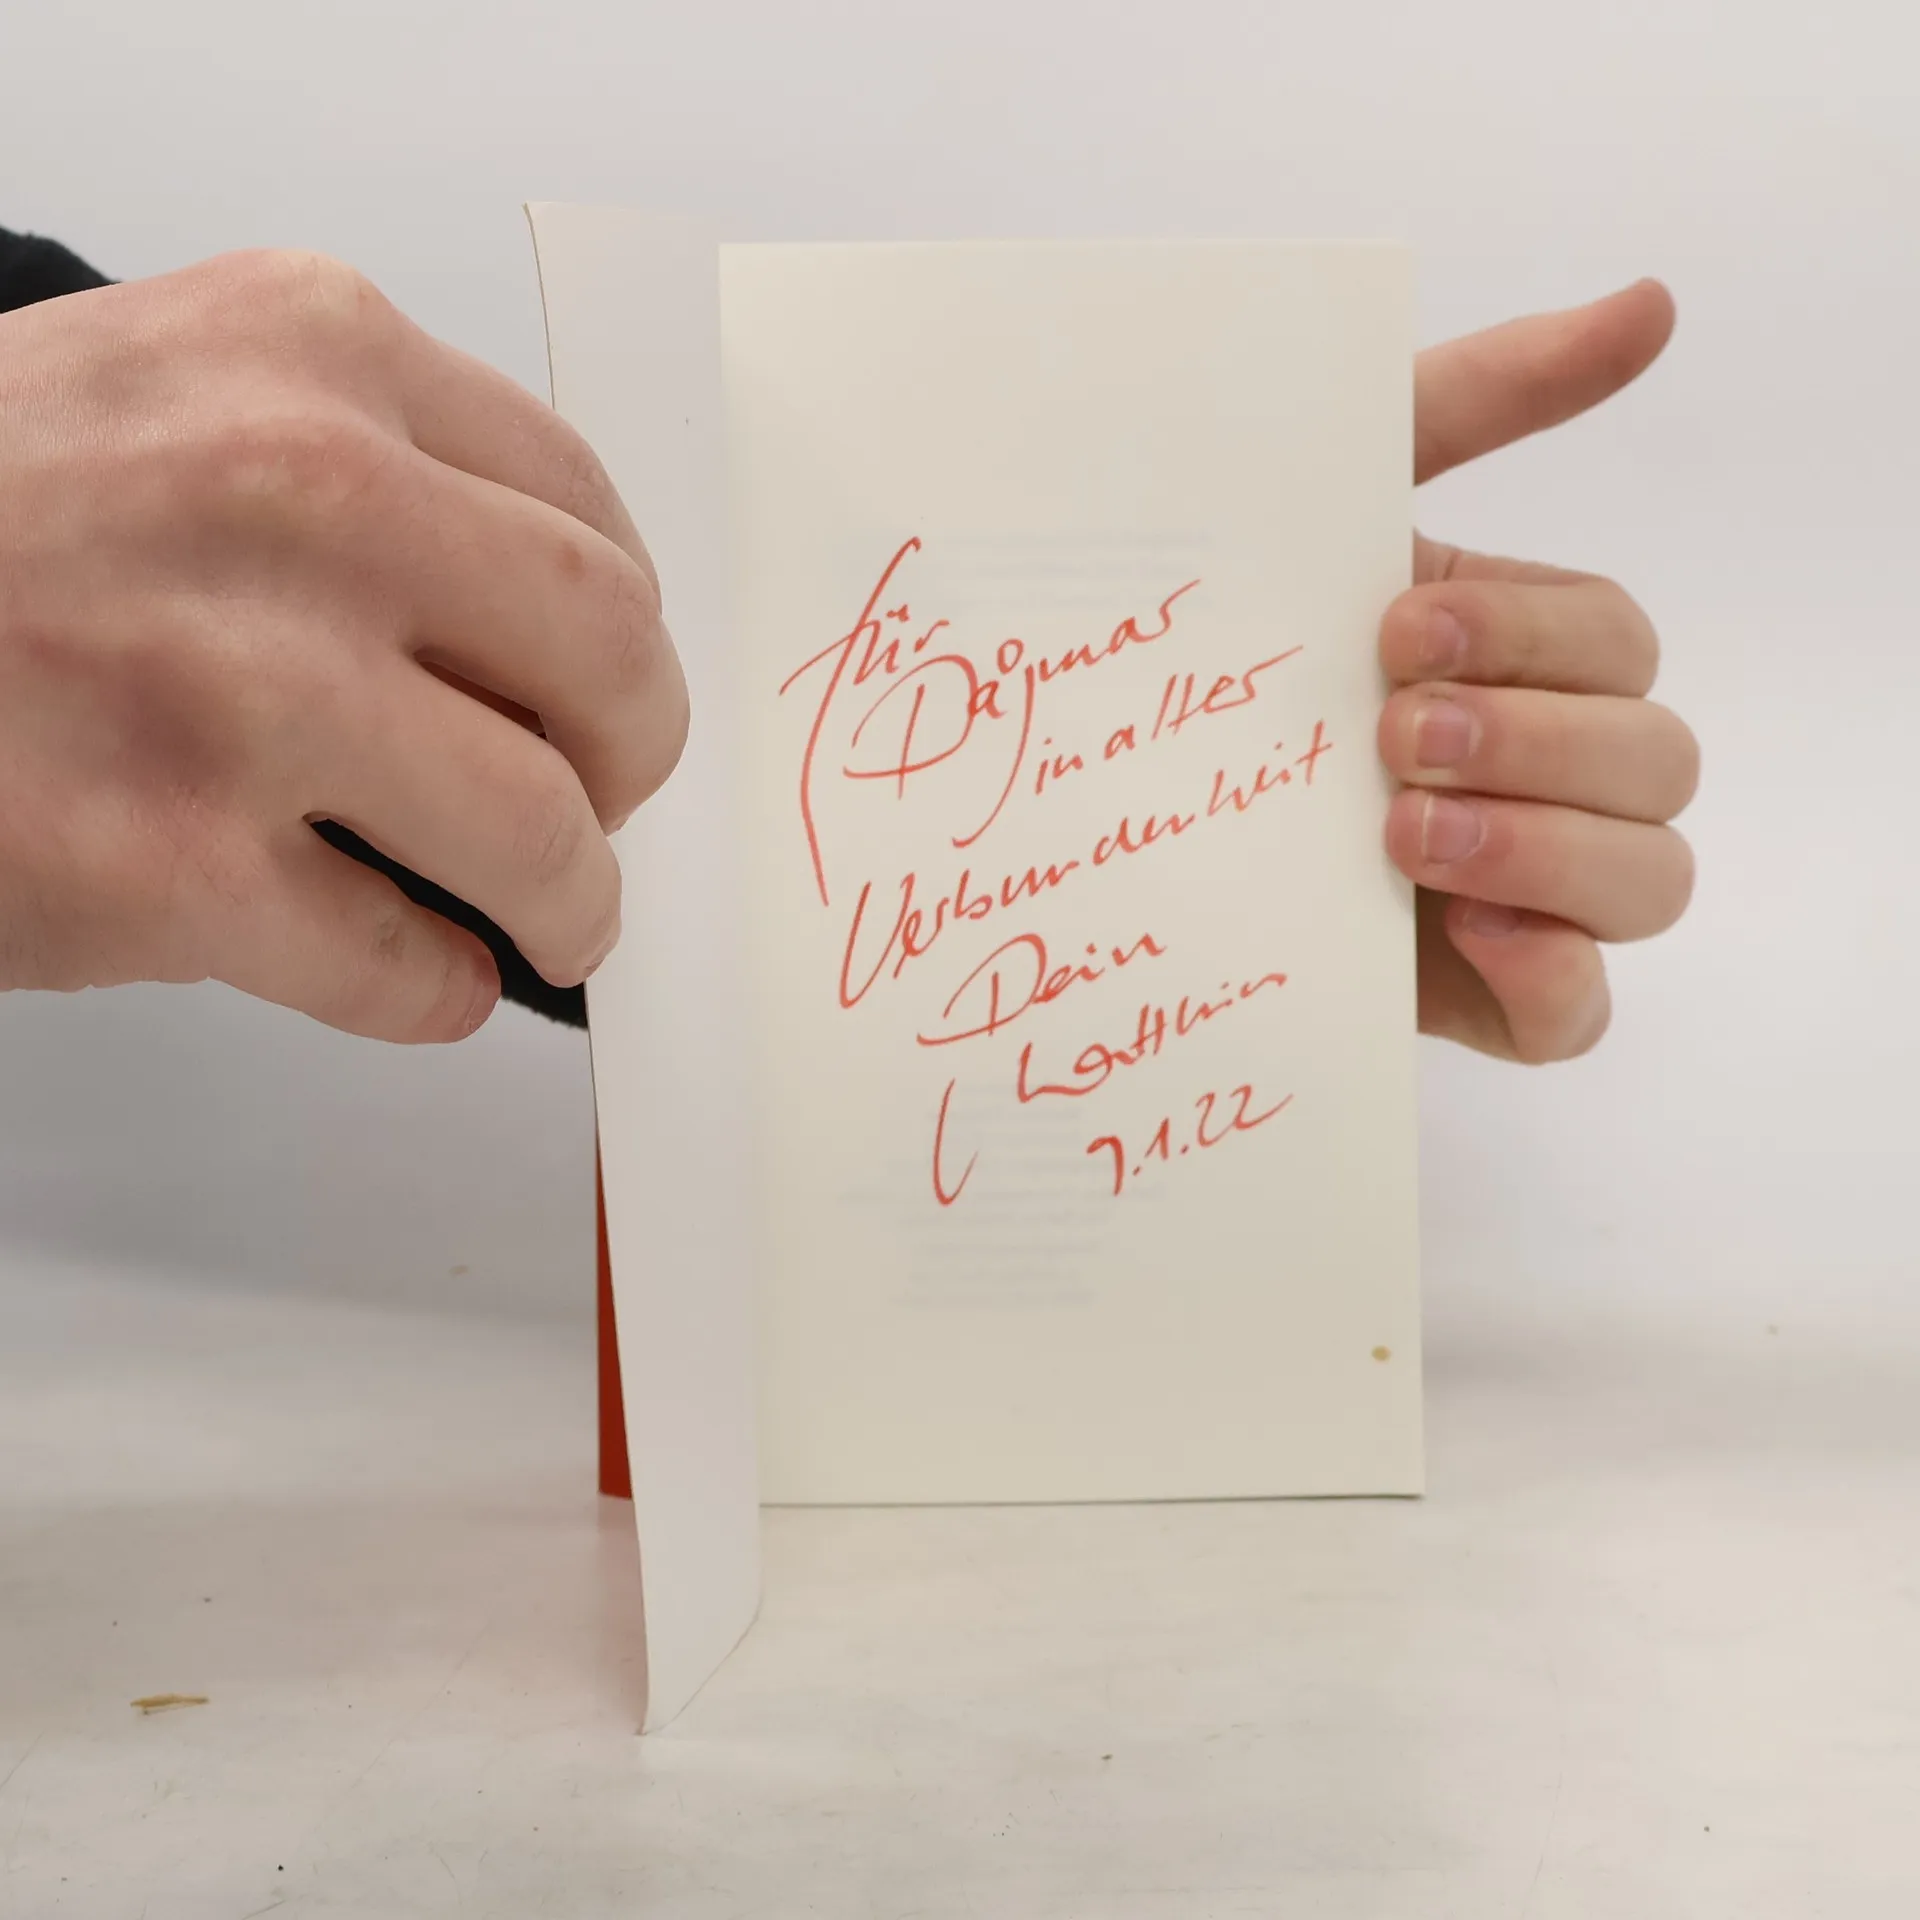 für
Dagmar
in alter
Verbundenheit
Dein
9.1.22